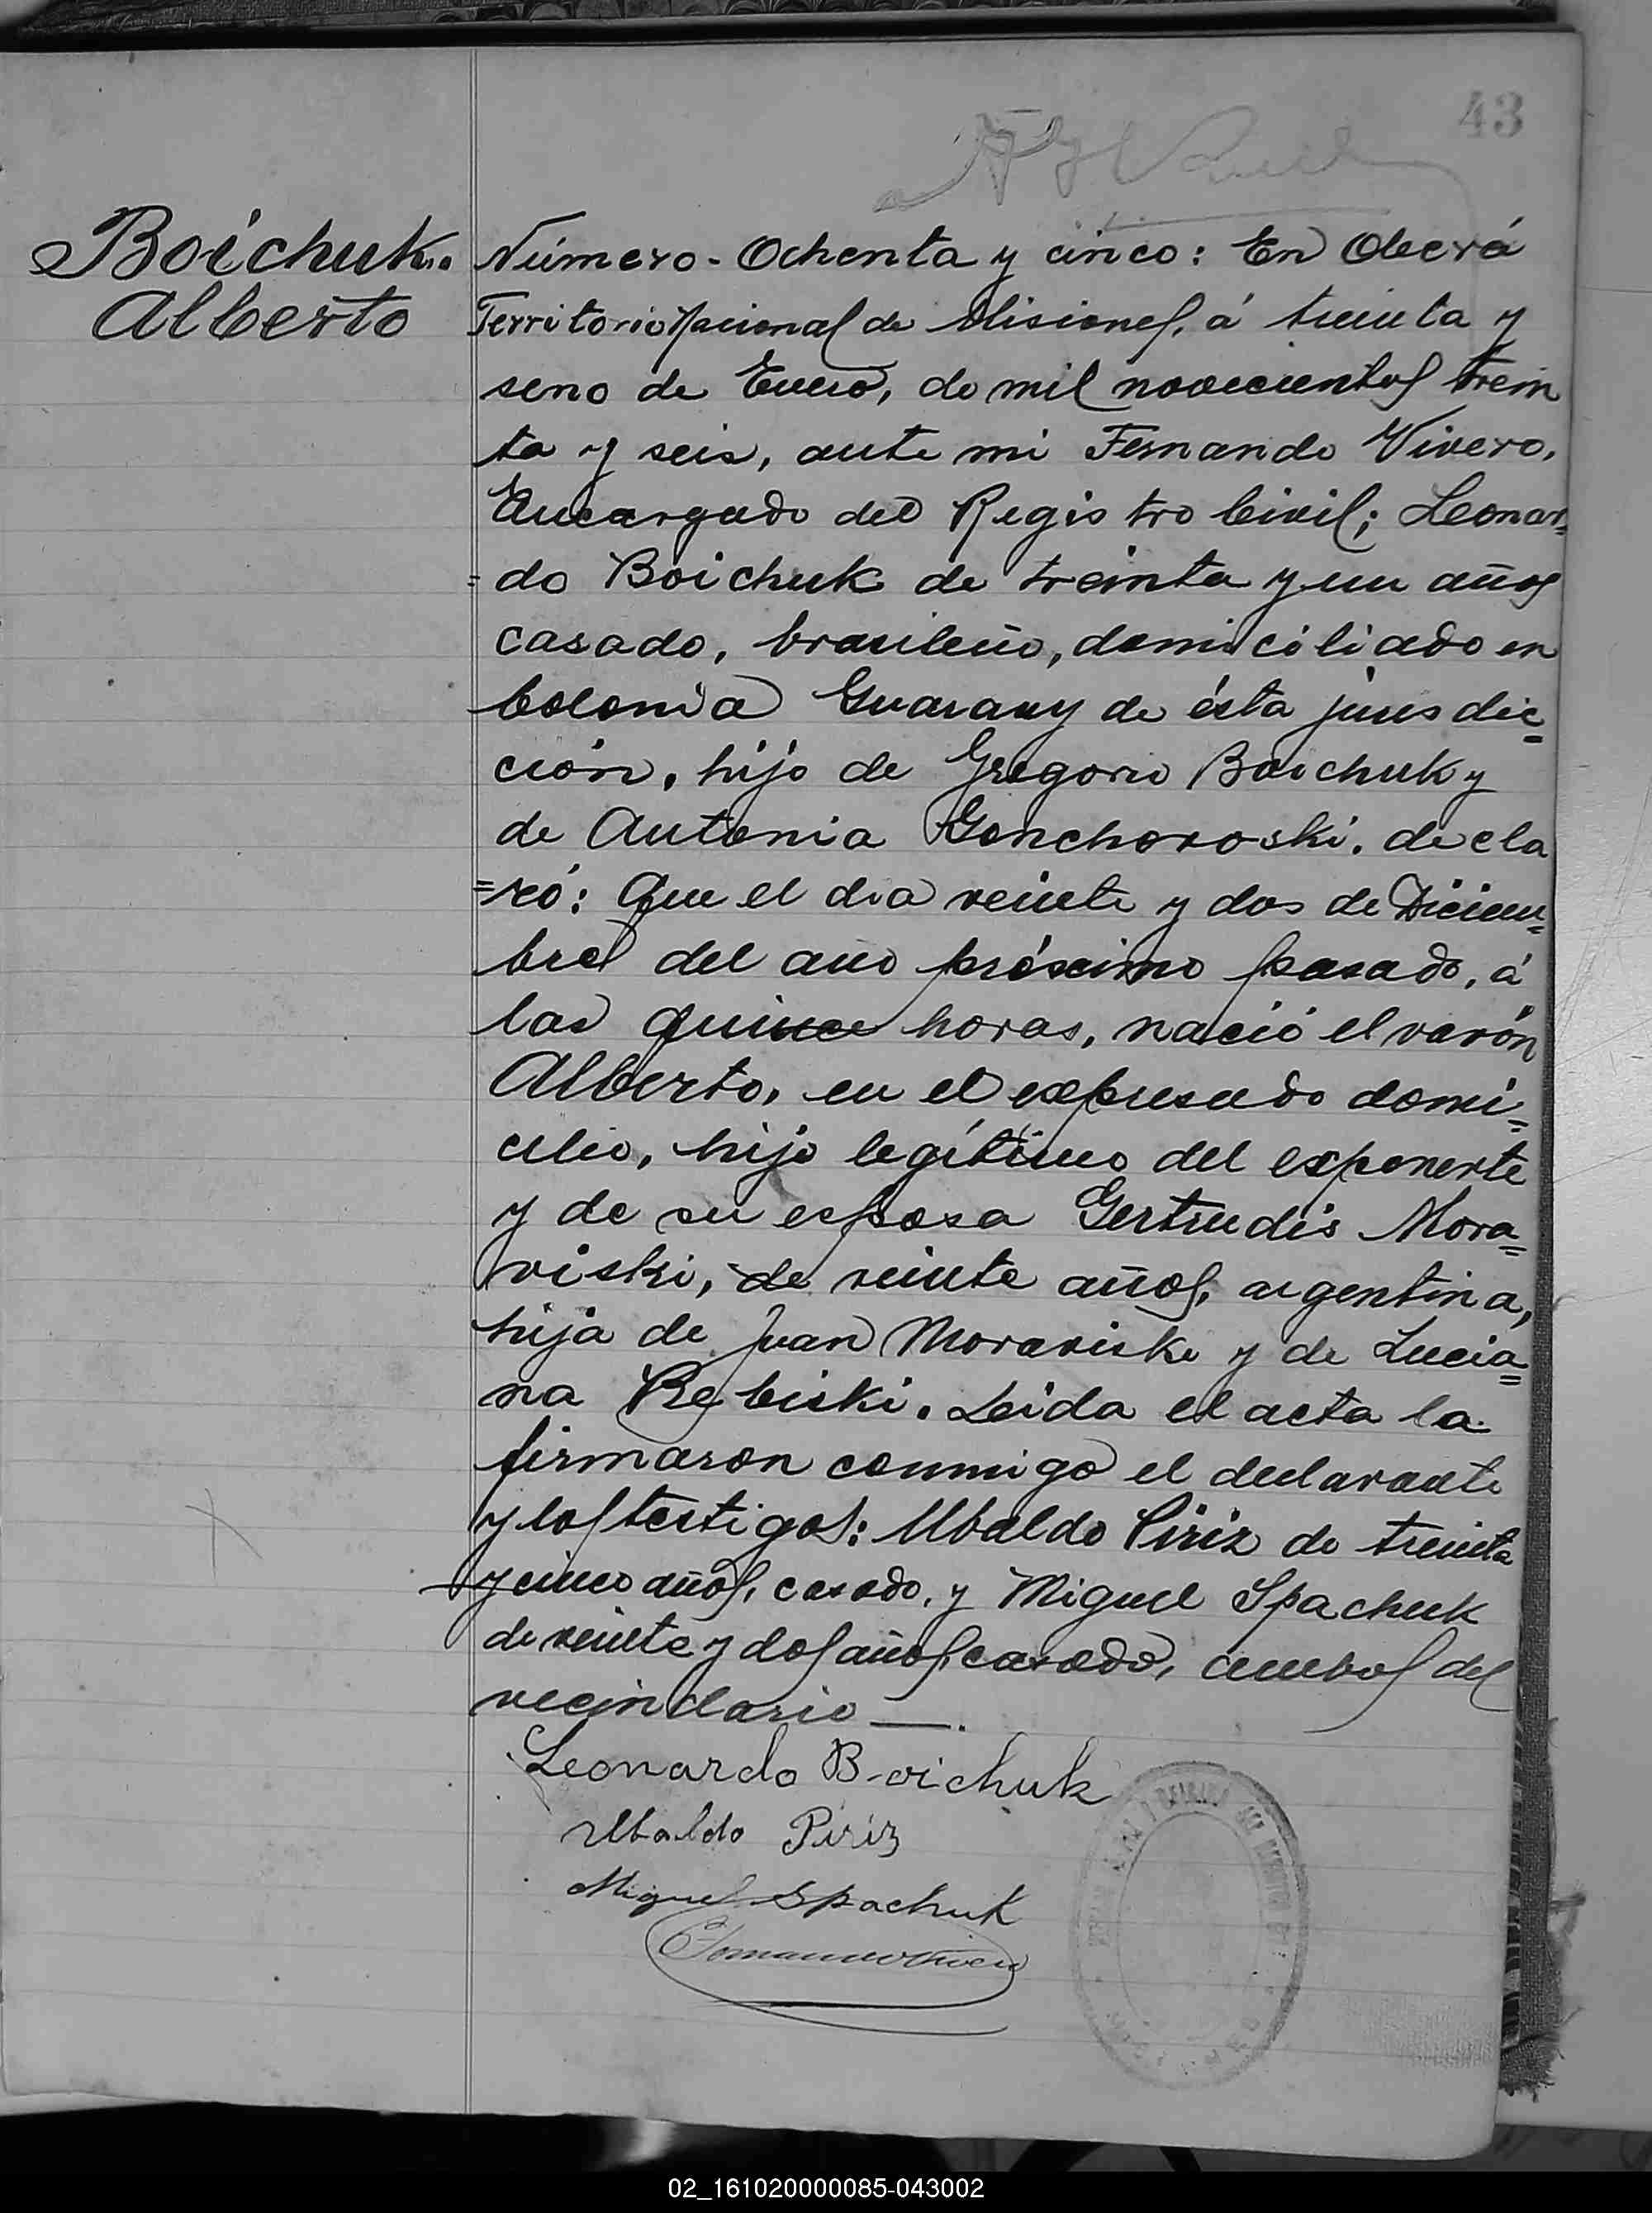 43
Boichuk..
Alberto
Número - Ochenta y cinco: En Oberá
Territorio Nacional de Misiones, á treinta y
uno de Enero, de mil novecientos trein
ta y seis, ante mi Fernando Vivero,
Encargado del Registro Civil; Leonar=
=do Boichuk de treinta y un años
casado, brasileño, domiciliado en
Colonia Guarany de ésta jurisdic=
ción, hijo de Gregorio Boichuk y
de Antonia Gonchoroski. decla
=ró: Que el dia veinte y dos de Diciem=
bre del año próximo pasado, á
las quince horas, nació el varón
Alberto, en el expresado domi=
cilio, hijo legítimo del exponente
y de su esposa Gertrudis Mora=
viski, de veinte años, argentina,
hija de Juan Moraviske y de Lucia=
na Rebiski. Leida el acta la
firmaron conmigo el declarante
y los testigos: Ubaldo Piriz de treinta
y cinco años, casado, y Miguel Spachuk
de veinte y dos años, casado, ambos del
vecindario —.
Leonardo Boichuk
Ubaldo Piriz
Miguel Spachuk
02_161020000085-043002